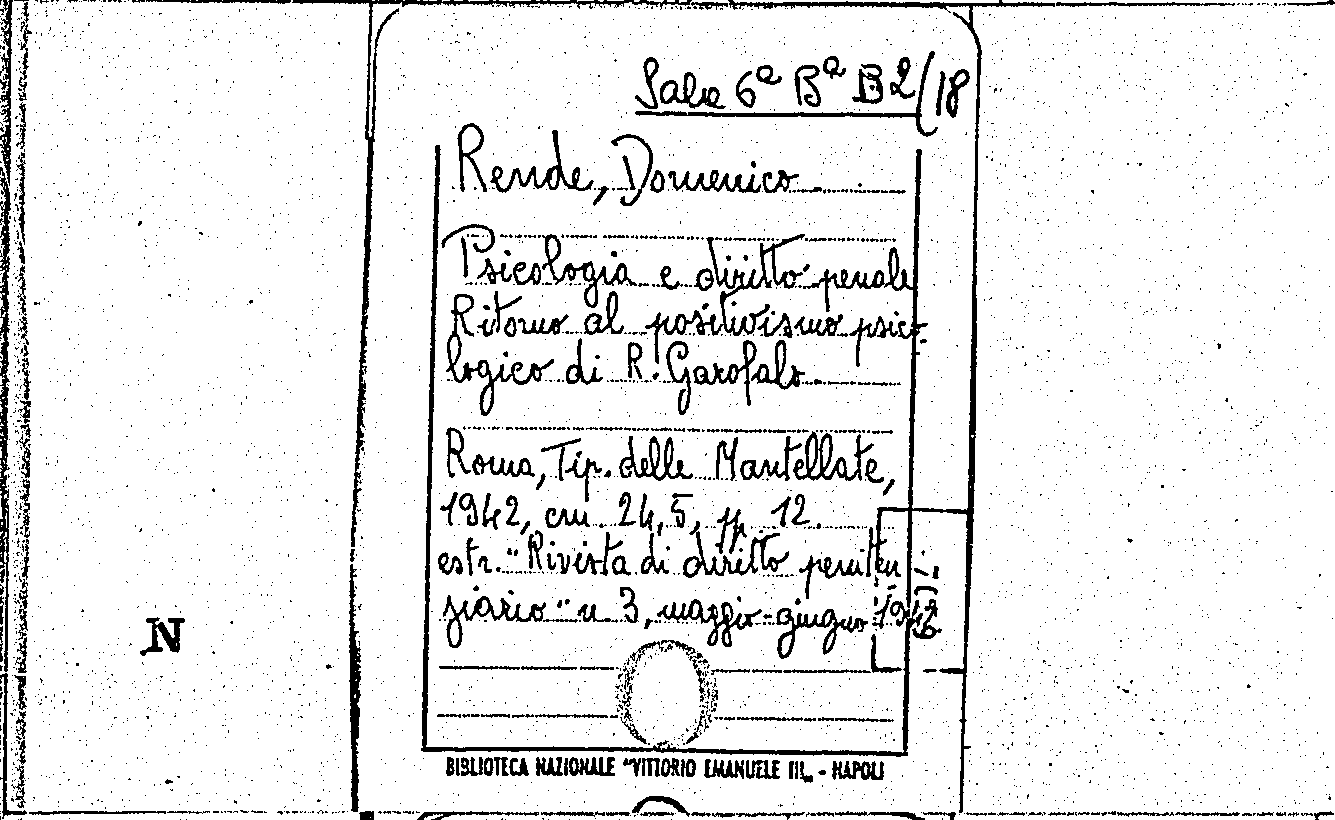 Sala 6ª Bª B2/18
Rende, Domenico.
Psicologia e diritto penale
Ritorno al positivismo psico-
logico di R. Garofalo.
Roma, Tip. delle Mantellate,
1942, cm. 24,5, pp. 12.
estr. "Rivista di diritto peniten-
ziario" n. 3, maggio-giugno 1942
N
BIBLIOTECA NAZIONALE "VITTORIO EMANUELE III„ - NAPOLI